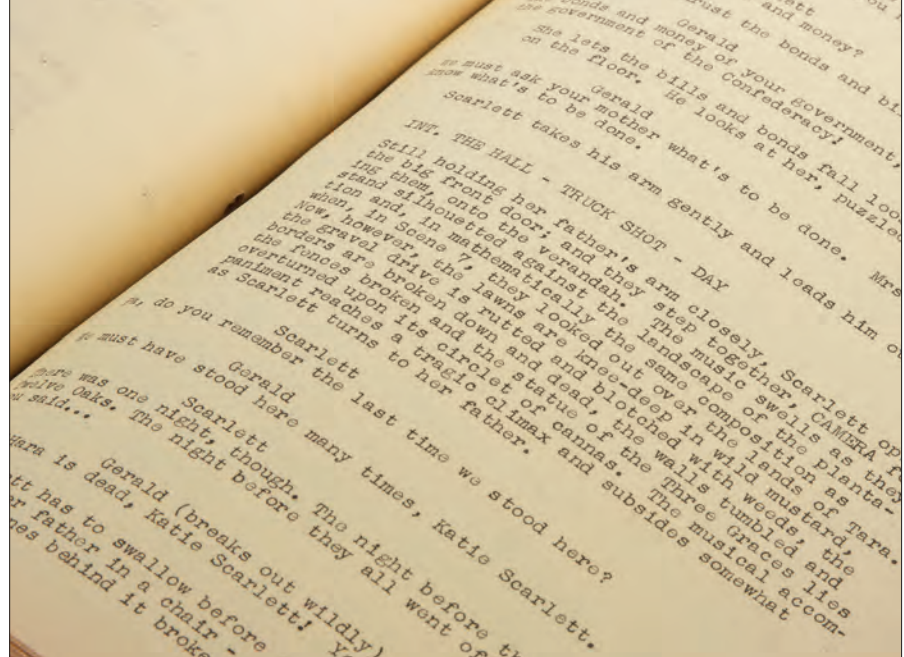 and money?
trust the bonds and
Gerald
bonds and money of your government,
the government of the Confederacy!
She lets the bills and bonds fall
on the floor. He looks at her, puzzled
Gerald
must ask your mother what's to be done. Mrs
know what's to be done.
Scarlett takes his arm gently and leads him
INT. THE HALL - TRUCK SHOT - DAY
Still holding her father's arm closely, Scarlett
the big front door; and they step together, CAMERA
ing them, onto the verandah. The music swells as they
stand silhouetted against the landscape of the planta-
tion and, in mathematically the same composition as
when, in Scene 7, they looked out over the lands of Tara.
Now, however, the lawns are knee-deep in wild mustard,
the gravel drive is rutted and blotched with weeds, the
borders are broken and dead, the walls tumbled and
the fences broken down and the statue of the Three Graces lies
overturned upon its circlet of cannas. The musical accom-
paniment reaches a tragic climax and subsides somewhat
as Scarlett turns to her father.
Scarlett
do you remember the last time we stood here?
Gerald
must have stood here many times, Katie Scarlett.
Scarlett
There was one night, though. The night before
Twelve Oaks. The night before they all went
said...
Gerald (breaks out wildly)
is dead, Katie Scarlett!
has to swallow before
father in a chair -
behind it